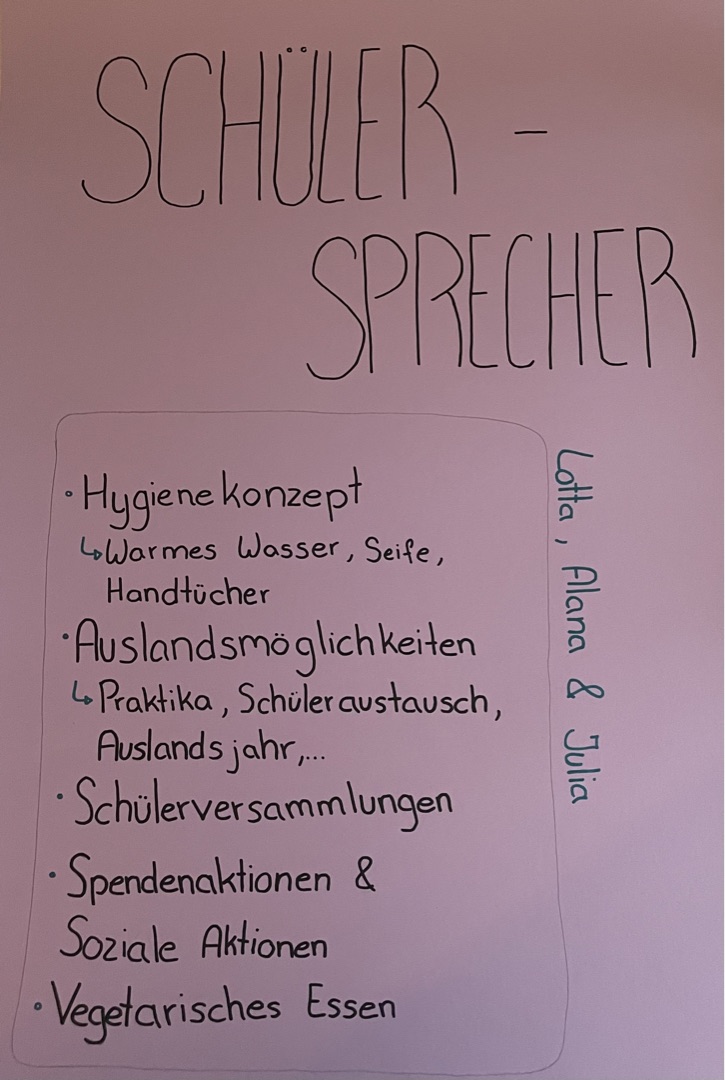 SCHÜLER -
SPRECHER
· Hygienekonzept
↳ Warmes Wasser, Seife,
Handtücher
· Auslandsmöglichkeiten
↳ Praktika, Schüleraustausch,
Auslandsjahr,...
· Schülerversammlungen
· Spendenaktionen &
Soziale Aktionen
· Vegetarisches Essen
Lotta, Alana & Julia